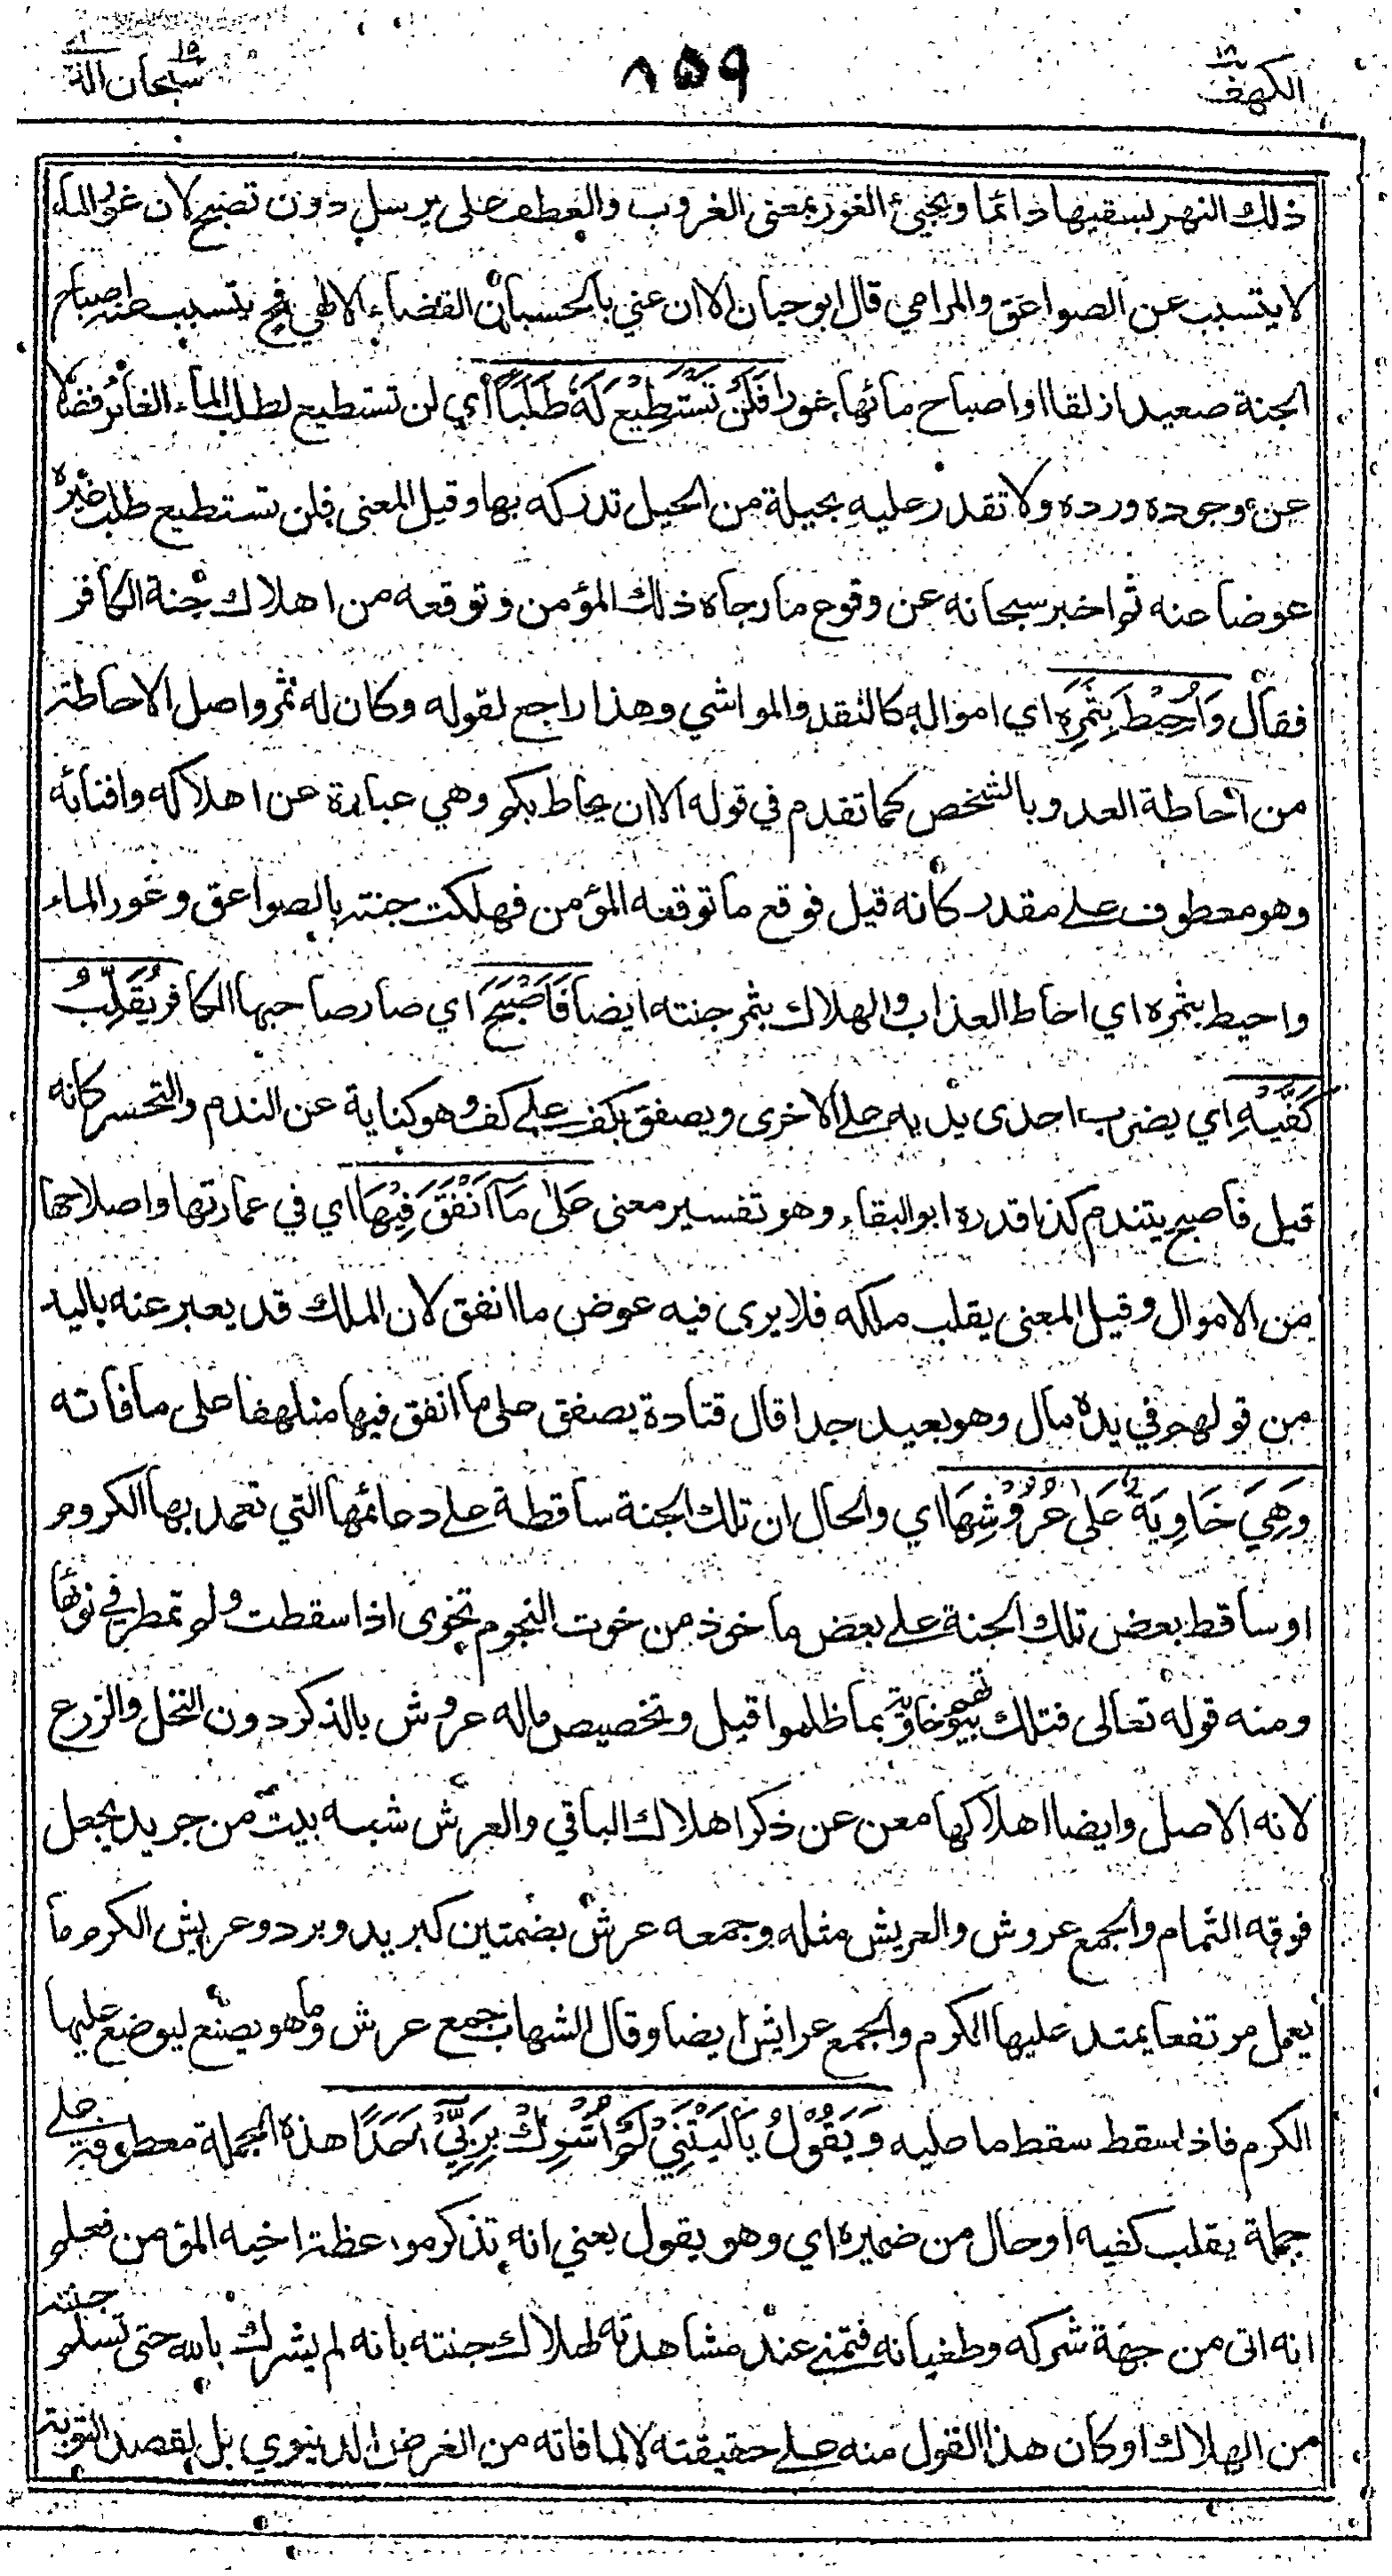 الكهف ١٨
٨٥٩
سبحان الذي ١٥
ذلك النهر يسقيها دائما ويجيئ الغور بمعنى الغروب والعطف على يرسل دون تصبح لان غور الماء
لا يتسبب عن الصواعق والمرامي قال ابو حيان الا ان عني بالحسبان القضاء الالهي فح يتسبب عنه اصباح
الجنة صعيدا زلقا او اصباح مائها غورا فَلَنْ تَسْتَطِيْعَ لَهُ طَلَبًا اي لن تستطيع لطلب الماء الغائر فضلا
عن وجوده ورده ولا تقدر عليه بحيلة من الحيل تدركه بها وقيل المعنى فلن تستطيع طلب غيره
عوضا عنه ثم اخبر سبحانه عن وقوع ما رجاه ذلك المؤمن وتوقعه من اهلاك جنة الكافر
فقال وَاُحِيْطَ بِثَمَرِهِ اي امواله كالنقد والمواشي وهذا راجع لقوله وكان له ثمر واصل الاحاطة
من احاطة العدو بالشخص كما تقدم في قوله الا ان يحاط بكم وهي عبارة عن اهلاكه وافنائه
وهو معطوف على مقدر كانه قيل فوقع ما توقعه المؤمن فهلكت جنته بالصواعق وغور الماء
واحيط بثمره اي احاط العذاب والهلاك بثمر جنته ايضا فَاَصْبَحَ اي صار صاحبها الكافر يُقَلِّبُ
كَفَّيْهِ اي يضرب احدى يديه على الاخرى ويصفق بكف على كف وهو كناية عن الندم والتحسر كانه
قيل فاصبح يتندم كذا قدره ابو البقاء وهو تفسير معنى عَلٰى مَآ اَنْفَقَ فِيْهَا اي في عمارتها واصلاحها
من الاموال وقيل المعنى يقلب ملكه فلا يرى فيه عوض ما انفق لان الملك قد يعبر عنه باليد
من قولهم في يده مال وهو بعيد جدا قال قتادة يصفق على ما انفق فيها متلهفا على ما فاته
وَهِيَ خَاوِيَةٌ عَلٰى عُرُوْشِهَا اي والحال ان تلك الجنة ساقطة على دعائمها التي تعمد بها الكروم
او ساقط بعض تلك الجنة على بعض ماخوذ من خوت النجوم تخوى اذا سقطت ولم تمطر في نوئها
ومنه قوله تعالى فتلك بيوتهم خاوية بما ظلموا قيل وتخصيص ماله عروش بالذكر دون النخل والزرع
لانه الاصل وايضا اهلاكها مغن عن ذكر اهلاك الباقي والعرش شبه بيت من جريد يجعل
فوقه الثمام والجمع عروش والعريش مثله وجمعه عرش بضمتين كبريد وبرد وعريش الكرم ما
يعمل مرتفعا يمتد عليها الكرم والجمع عرائش ايضا وقال الشهاب جمع عرش وما هو يصنع ليوضع عليها
الكرم فاذا سقط سقط ما عليه وَيَقُوْلُ يَا لَيْتَنِيْ لَمْ اُشْرِكْ بِرَبِّيْ اَحَدًا هذه الجملة معطوفة على
جملة يقلب كفيه او حال من ضميره اي وهو يقول يعني انه تذكر موعظة اخيه المؤمن فعلم
انه اتى من جهة شركه وطغيانه فتمنى عند مشاهدته لهلاك جنته بانه لم يشرك بالله حتى تسلم جنته
من الهلاك او كان هذا القول منه على حقيقته لا لما فاته من الغرض الدنيوي بل لقصد التوبة